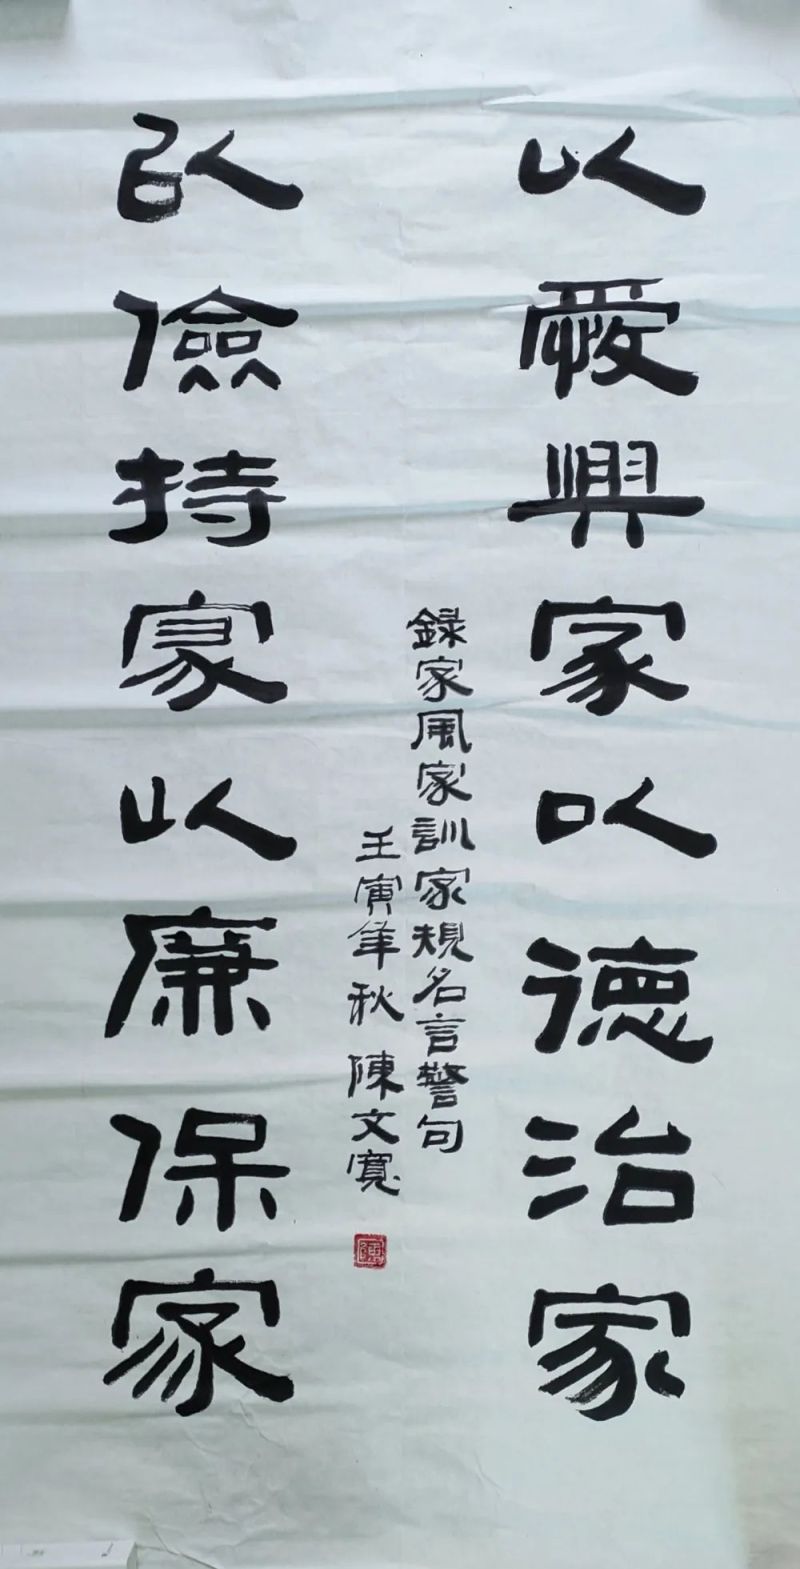 以愛興家以德治家
以儉持家以廉保家
録家風家訓家規名言警句
壬寅年秋陳文寬
陳